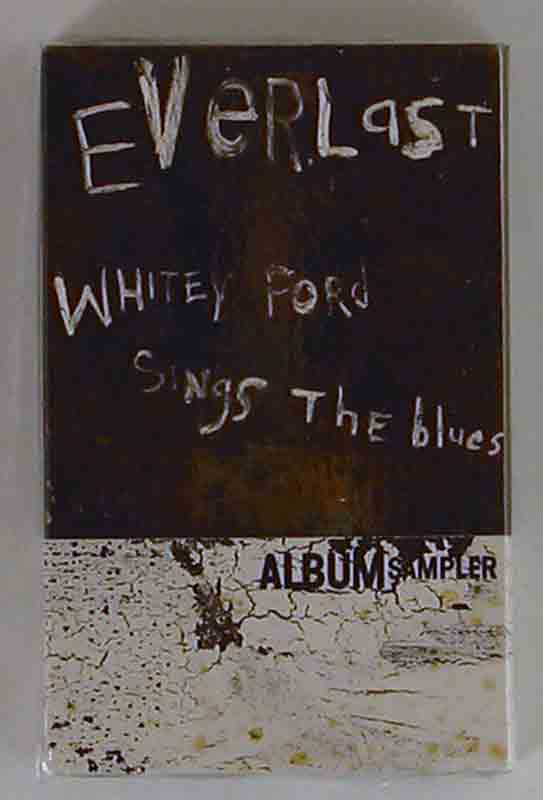 EVeRLasT
WHITEY FORd
SiNgS The blues
ALBUMSAMPLER